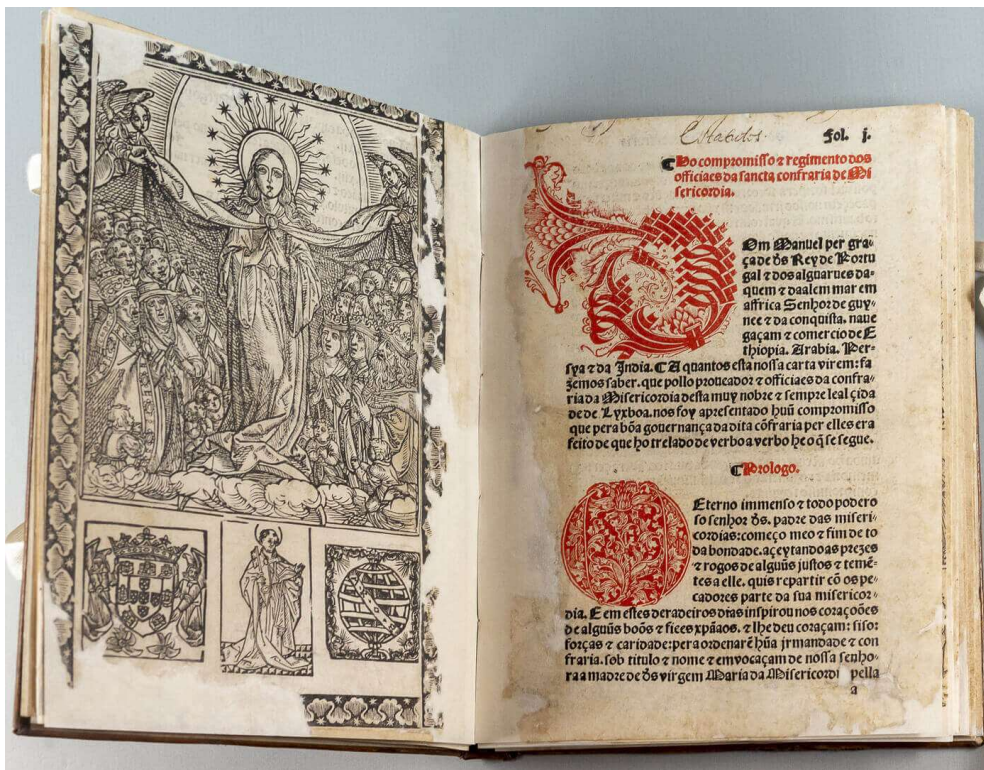 Estatutos.
Fol. j.
¶ Ho compromisso ⁊ regimento dos
officiaes da sancta confraria de Mi
sericordia.
Dom Manuel per gra-
ça de d̃s Rey de Portu
gal ⁊ dos alguarues da-
quem ⁊ daalem mar em
affrica Senhor de guy-
nee ⁊ da conquista. naue
gaçam ⁊ comercio de E
thiopia. Arabia. Per-
sya ⁊ da India. ¶ A quantos esta nossa carta virem: fa
zemos saber. que pollo proueador ⁊ officiaes da confra-
ria da Misericordia desta muy nobre ⁊ sempre leal çida
de de Lyxboa. nos foy apresentado huũ compromisso
que pera bõa gouernança da dita cõfraria per elles era
feito de que ho trelado de verbo a verbo he o q̃ se segue.
¶ Prologo.
O Eterno immenso ⁊ todo podero
so senhor d̃s. padre das miseri-
cordias: começo meo ⁊ fim de to
da bondade. açeytando as prezes
⁊ rogos de alguũs justos ⁊ temẽ-
tes a elle. quis repartir cõ os pe-
cadores parte da sua misericor-
dia. E em estes deradeiros dias inspirou nos coraçoões
de alguũs boõs ⁊ fiees xp̃aãos. ⁊ lhe deu coraçam: siso:
forças ⁊ caridade: pera ordenarẽ hũa jrmandade ⁊ con
fraria. sob titulo ⁊ nome ⁊ emvocaçam de nossa senho-
ra a madre de d̃s virgem Maria da Misericordi pella
a